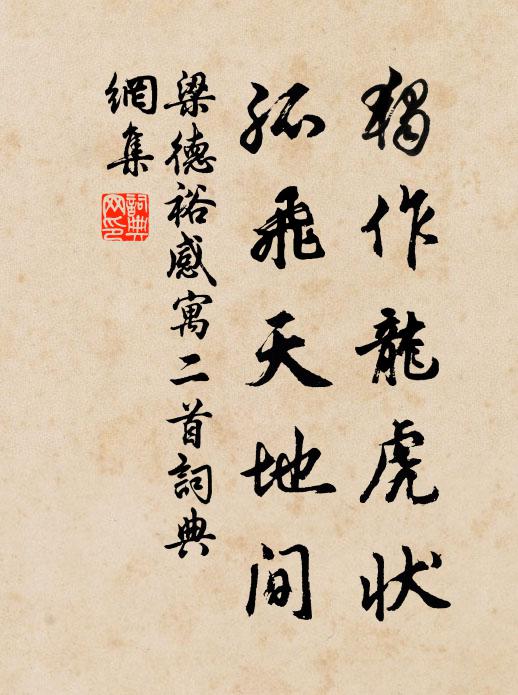 獨作龍虎状
孤飛天地间
梁德裕感寓二首詞典
網集
詞典
网印